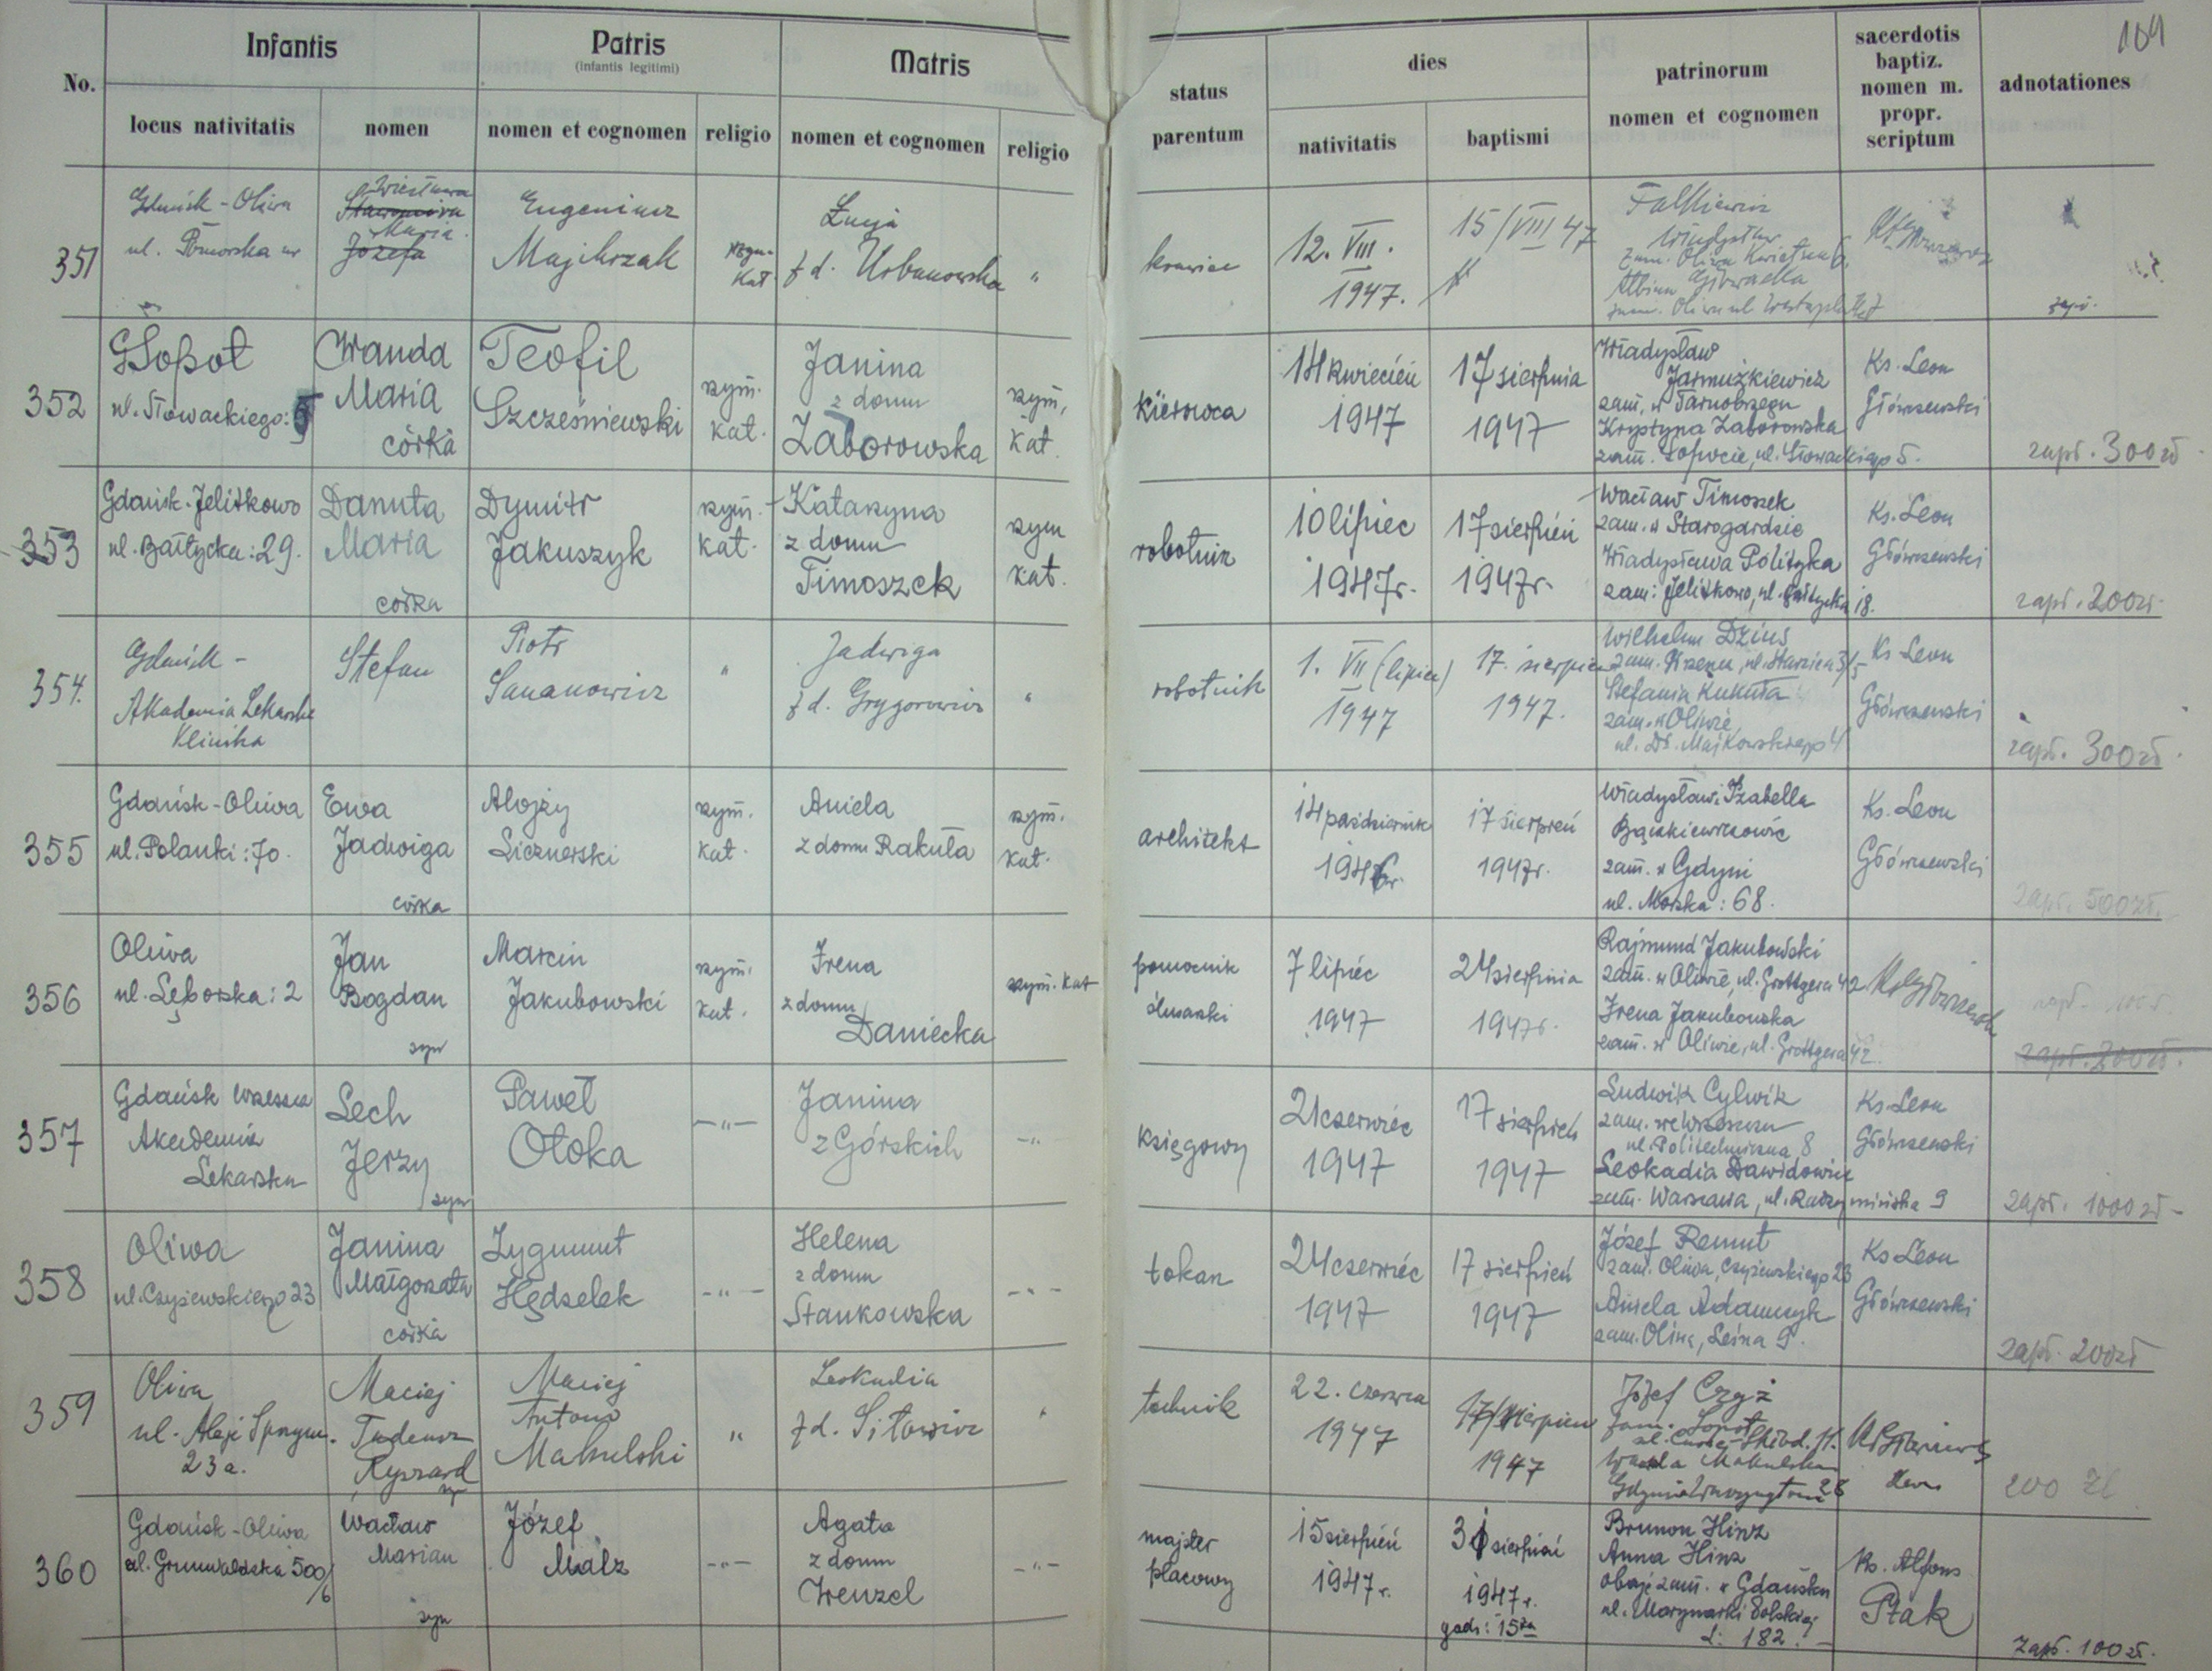 109
No.
Infantis
locus nativitatis
nomen
Patris
(infantis legitimi)
nomen et cognomen
religio
Matris
nomen et cognomen
religio
status
parentum
dies
nativitatis
baptismi
patrinorum
nomen et cognomen
sacerdotis
baptiz.
nomen m.
propr.
scriptum
adnotationes
351
Gdańsk - Oliwa
ul. Pomorska nr
Wiesława
Maria
Józefa
Eugeniusz
Majchrzak
rzym.
Kat.
Łucja
z d. Urbanowska
"
krawiec
12. VIII.
1947.
15/VIII 47
Falkiewicz
Władysław
zam. Oliwa Kwietna 6
Albina
zam. Oliwa ul
zapł.
352
Sopot
ul. Słowackiego: 5
Wanda
Maria
córka
Teofil
Szcześniewski
rzym.
kat.
Janina
z domu
Zaborowska
rzym,
kat.
kierowca
14 kwiecień
1947
17 sierpnia
1947
Władysław
Jarmużkiewicz
zam, w Tarnobrzegu
Krystyna Zaborowska
zam. Sopocie, ul. Słowackiego 5.
Ks. Leon
Główczewski
zapł. 300 zł
353
Gdańsk-Jelitkowo
ul. Bałtycka: 29.
Danuta
Maria
córka
Dymitr
Jakuszyk
rzym.
kat.
Katarzyna
z domu
Timoszek
rzym
kat.
robotnik
10 lipiec
1947r.
17 sierpień
1947r.
Wacław Timoszek
zam. w Starogardzie
Władysława Polityka
zam: Jelitkowo, ul. Bałtycka 18.
Ks. Leon
Główczewski
zapł. 200 zł.
354.
Gdańsk -
Akademia Lekarska
Klinika
Stefan
Piotr
Sananowicz
"
Jadwiga
z d. Grygorowicz
"
robotnik
1. VII (lipiec)
1947
17. sierpień
1947.
Wilhelm Dzius
Stefania Kukuła
zam. w Oliwie
ul. Dr. Majkowskiego 4
Ks Leon
Główczewski
zapł. 300 zł.
355
Gdańsk - Oliwa
ul. Polanki: 70.
Ewa
Jadwiga
córka
Alojzy
Licznerski
rzym.
kat.
Aniela
z domu Rakuła
rzym.
kat.
architekt
14 październik
1946r.
17 sierpień
1947r.
Władysław i Izabella
zam. w Gdyni
ul. Morska: 68.
Ks. Leon
Główczewski
zapł. 500 zł.
356
Oliwa
ul. Lęborska: 2
Jan
Bogdan
syn
Marcin
Jakubowski
rzym.
kat.
Irena
z domu
Daniecka
rzym. kat
pomocnik
ślusarski
7 lipiec
1947
24 sierpnia
1947r.
Rajmund Jakubowski
zam. w Oliwie, ul. Grottgera 42
Irena Jakubowska
zam. w Oliwie, ul. Grottgera 42.
zapł. 200 zł.
357
Gdańsk Wrzeszcz
Akademia
Lekarska
Lech
Jerzy
syn
Paweł
Otoka
-"-
Janina
z Górskich
-"-
księgowy
21 czerwiec
1947
17 sierpień
1947
Ludwik Cylwik
zam. we Wrzeszczu
ul. Politechniczna 8
Leokadia Dawidowicz
zam. Warszawa, ul. Radzymińska 9
Ks. Leon
Główczewski
zapł. 1000 zł -
358
Oliwa
ul. Czyżewskiego 23
Janina
Małgorzata
córka
Zygmunt
Hędzelek
-"-
Helena
z domu
Stankowska
-"-
tokarz
24 czerwiec
1947
17 sierpień
1947
Józef Remut
zam. Oliwa, Czyżewskiego 23
Aniela Adamczyk
zam. Oliwa, Leśna 9.
Ks Leon
Główczewski
zapł. 200 zł
359
Oliwa
ul. Aleje Sprzym.
23 a.
Maciej
Tadeusz
Ryszard
syn
Maciej
Antoni
Makulski
"
Leokadia
z d. Sitowicz
"
technik
22. czerwca
1947
17/sierpień
1947
Józef Czyż
zam. Sopot
ul. Curie-Skłod. 11.
Wanda Makulska
Gdynia Waszyngtona 28
Leon
200 zł
360
Gdańsk - Oliwa
ul. Grunwaldzka 500/6
Wacław
Marian
syn
Józef
Malz
-"-
Agata
z domu
Wenzel
-"-
majster
placowy
15 sierpień
1947r.
31 sierpień
1947r.
godz: 15ta
Brunon Hinz
Anna Hinz
oboje zam. w Gdańsku
ul. Marynarki Polskiej
L: 182.
Ks. Alfons
Ptak
Zapł. 100 zł.